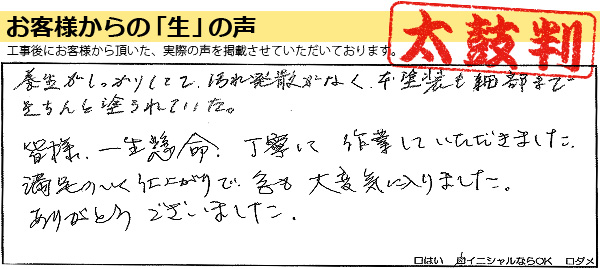 お客様からの「生」の声
工事後にお客様から頂いた、実際の声を掲載させていただいております。
太鼓判
養生がしっかりしてて、汚れ発散がなく、本塗装も細部まで
きちんと塗られていた。
皆様、一生懸命、丁寧に作業していただきました。
満足のいく仕上がりで、色も大変気に入りました。
ありがとうございました。
口はい 口イニシャルならOK 口ダメ